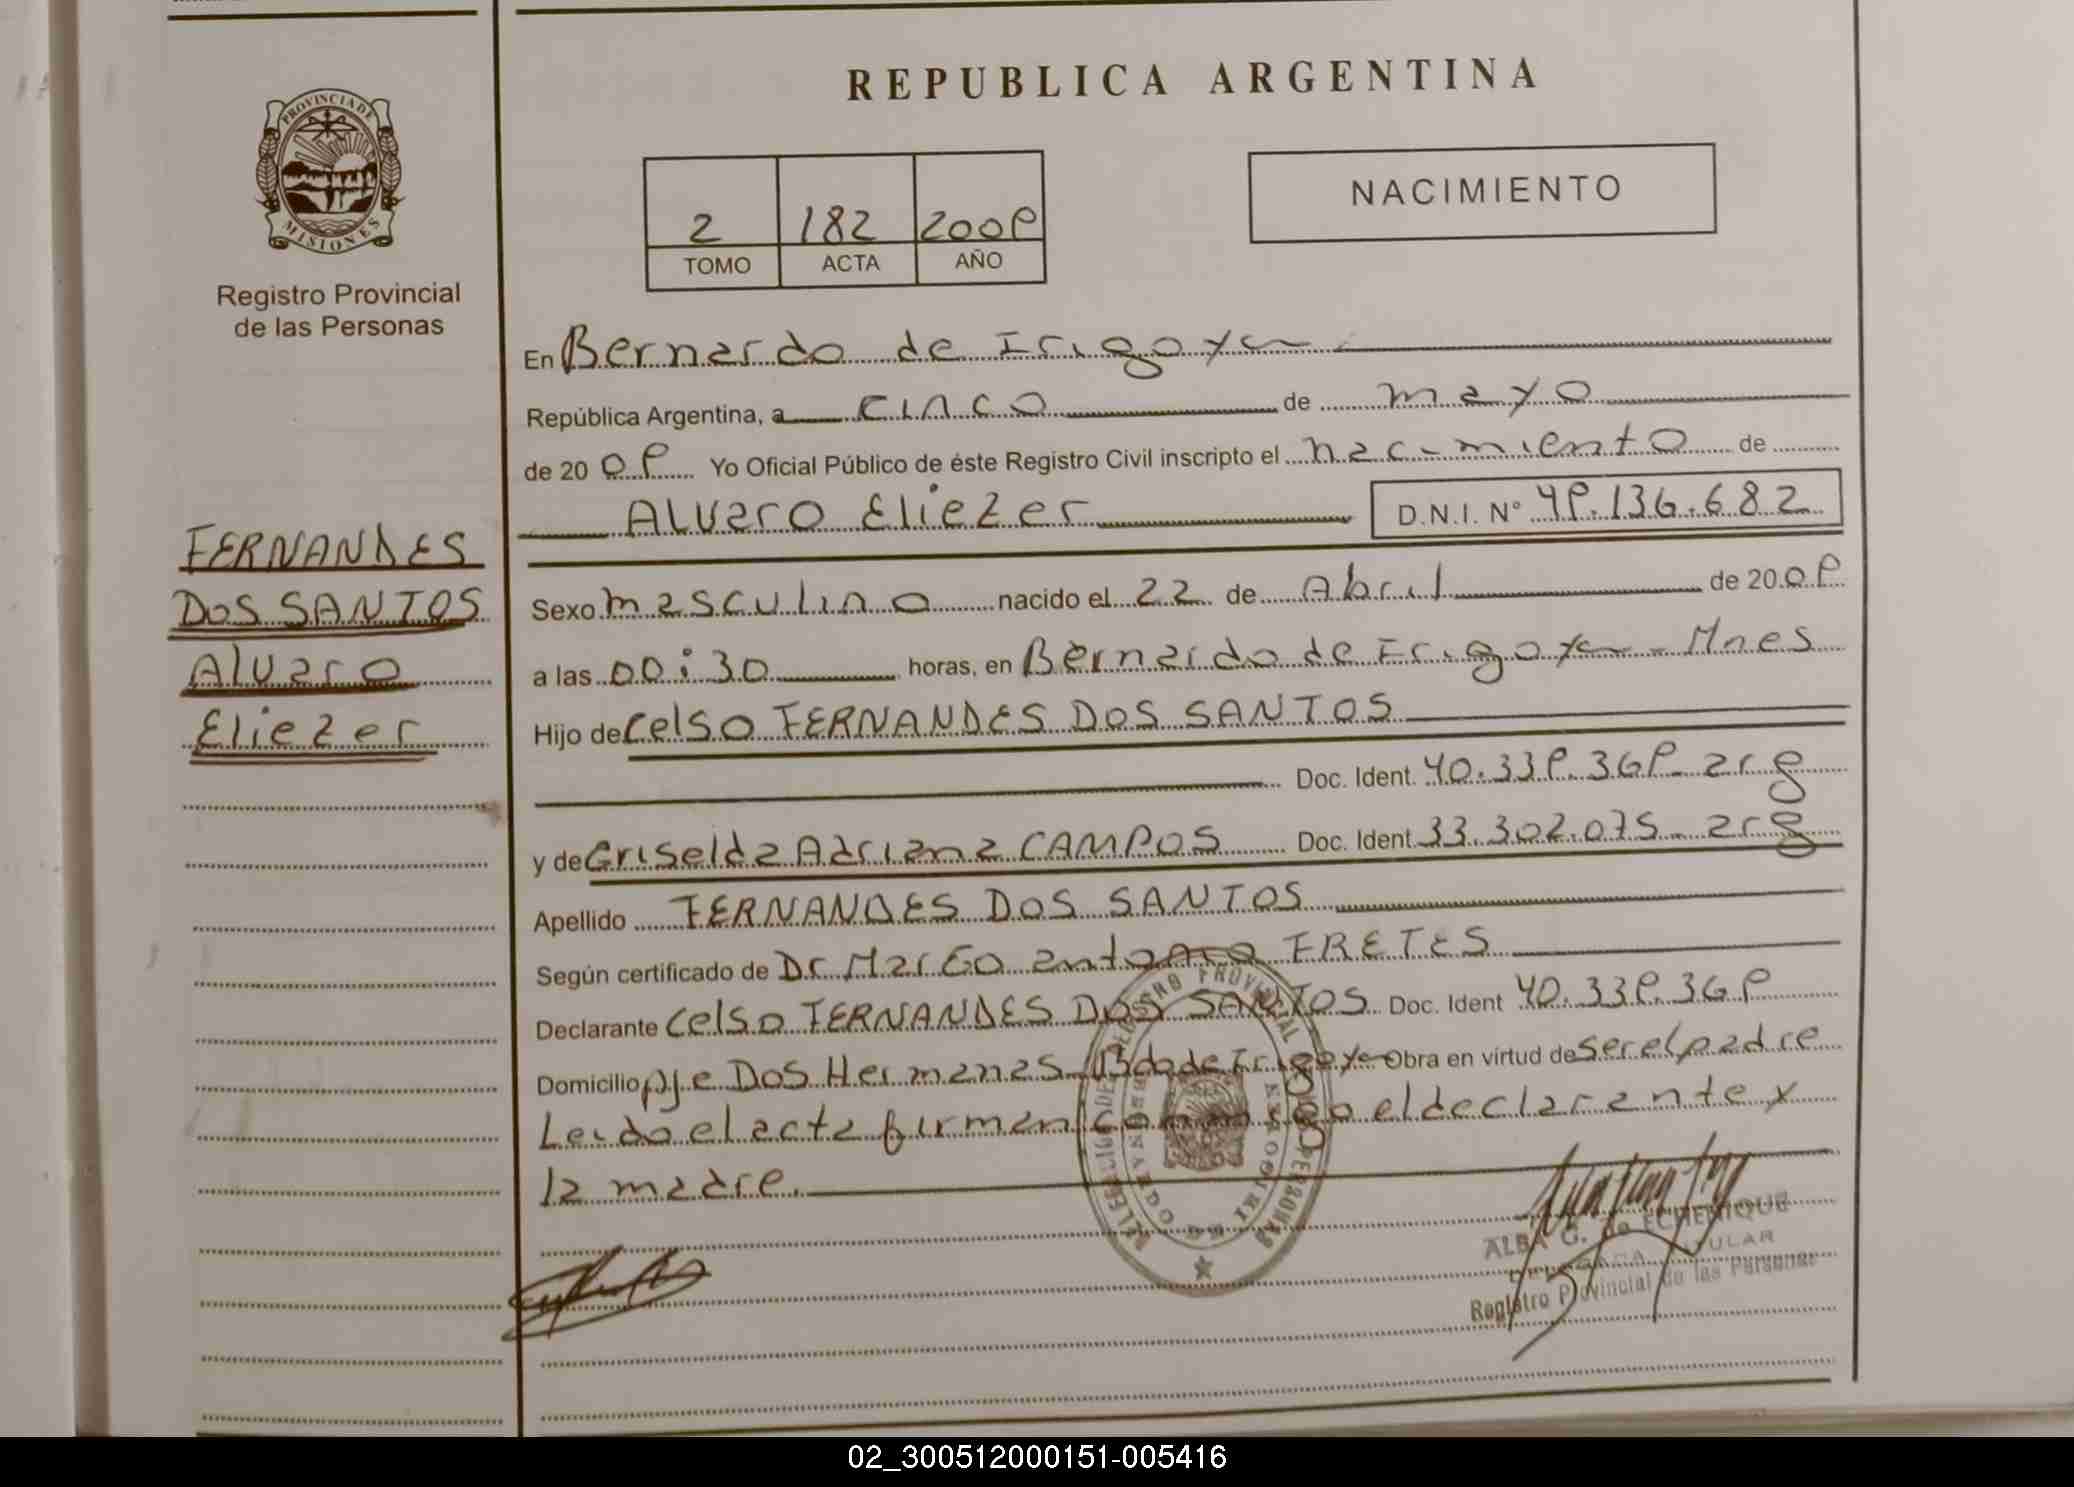 PROVINCIA DE
MISIONES
Registro Provincial
de las Personas
FERNANDES
DOS SANTOS
Alvaro
Eliezer
REPUBLICA ARGENTINA
2 182 2009
TOMO ACTA AÑO
NACIMIENTO
En Bernardo de Irigoyen
República Argentina, a cinco de mayo
de 20 09 Yo Oficial Público de éste Registro Civil inscripto el nacimiento de
Alvaro Eliezer D.N.I. N° 49.136.682
Sexo masculino nacido el 22 de Abril de 20 09
a las 00:30 horas, en Bernardo de Irigoyen - Mnes
Hijo de Celso FERNANDES DOS SANTOS
Doc. Ident. 40.339.369 - arg
y de Griselda Adriana CAMPOS Doc. Ident. 33.302.075 - arg
Apellido FERNANDES DOS SANTOS
Según certificado de Dr Marco antonio FRETES
Declarante Celso FERNANDES DOS SANTOS Doc. Ident 40.339.369
Domicilio pje Dos Hermanas - Bdo de Irigoyen Obra en virtud de ser el padre
Leido el acta firman conmigo el declarante y
la madre.
REGISTRO PROVINCIAL PERSONAS
ALBA G. de ECHENIQUE
DELEGADA TITULAR
Registro Provincial de las Personas
02_300512000151-005416